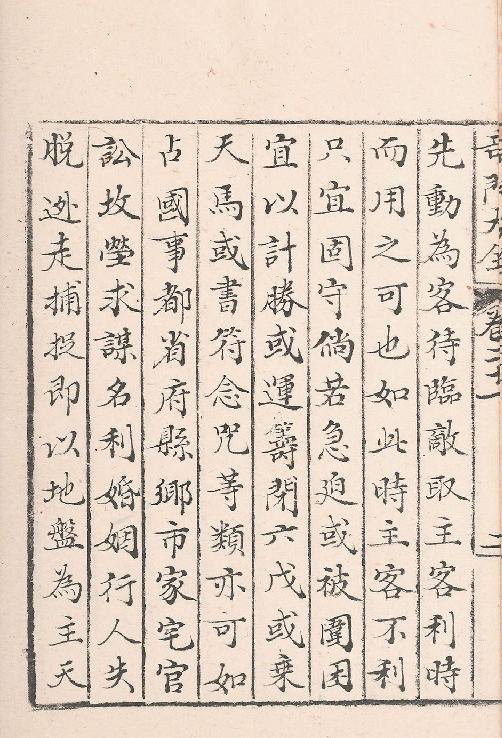 奇門大全 卷二十一 二
先動為客待臨敵取主客利時
而用之可也如此時主客不利
只宜固守倘若急迫或被圍困
宜以計勝或運籌閉六戊或乗
天馬或書符念咒等類亦可如
占國事都省府縣鄉市家宅官
訟坟塋求謀名利婚姻行人失
脫逃走捕捉即以地盤為主天